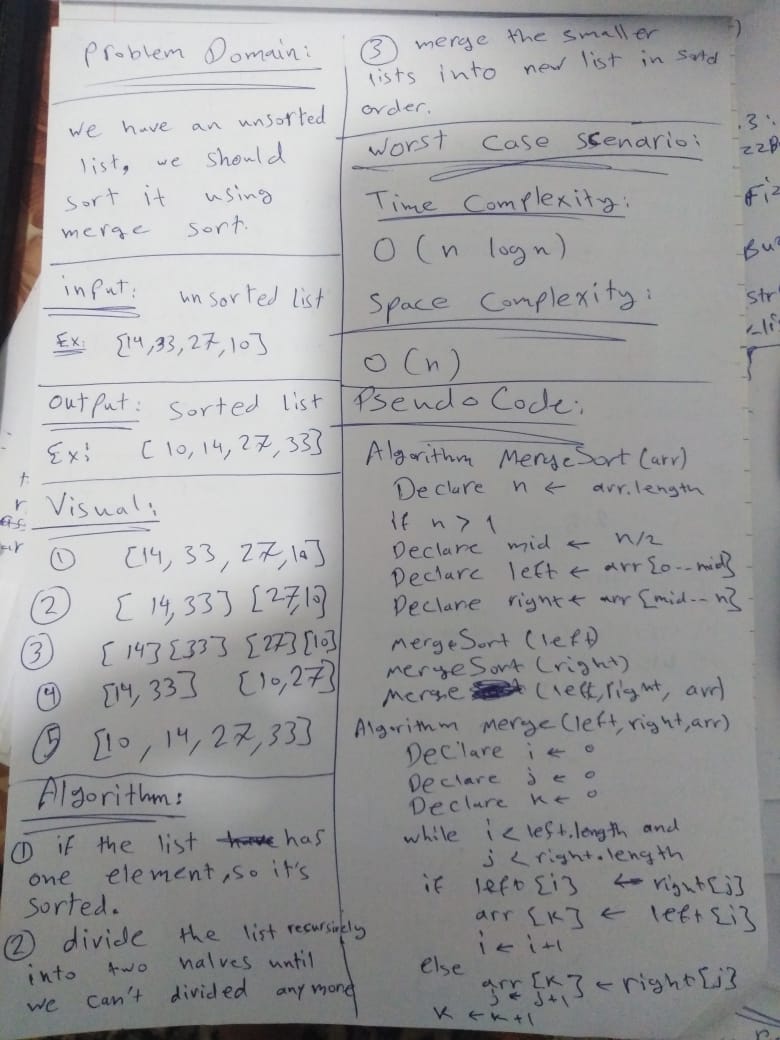 Problem Domain:
we have an unsorted
list, we should
sort it using
merge sort.
input: unsorted list
Ex: [14,33,27,10]
output: Sorted list
Ex: [10,14,27,33]
Visual:
① [14, 33, 27,10]
② [14,33] [27,10]
③ [14] [33] [27] [10]
④ [14, 33] [10,27]
⑤ [10, 14, 27, 33]
Algorithm:
① if the list has
one element, so it's
sorted.
② divide the list recursively
into two halves until
we can't divided any more
③ merge the smaller
lists into new list in
order.
Worst Case Scenario:
Time Complexity:
O (n logn)
Space Complexity:
O (n)
Pseudo Code:
Algorithm MergeSort (arr)
Declare n ← arr.length
if n > 1
Declare mid ← n/2
Declare left ← arr [0--mid]
Declare right ← arr [mid--n]
MergeSort (left)
MergeSort (right)
Merge (left, right, arr)
Algorithm Merge (left, right, arr)
Declare i ← 0
Declare j ← 0
Declare k ← 0
while i < left.length and
j < right.length
if left [i] <= right [j]
arr [k] ← left [i]
i ← i+1
else
arr [k] ← right [j]
j ← j+1
k ← k+1